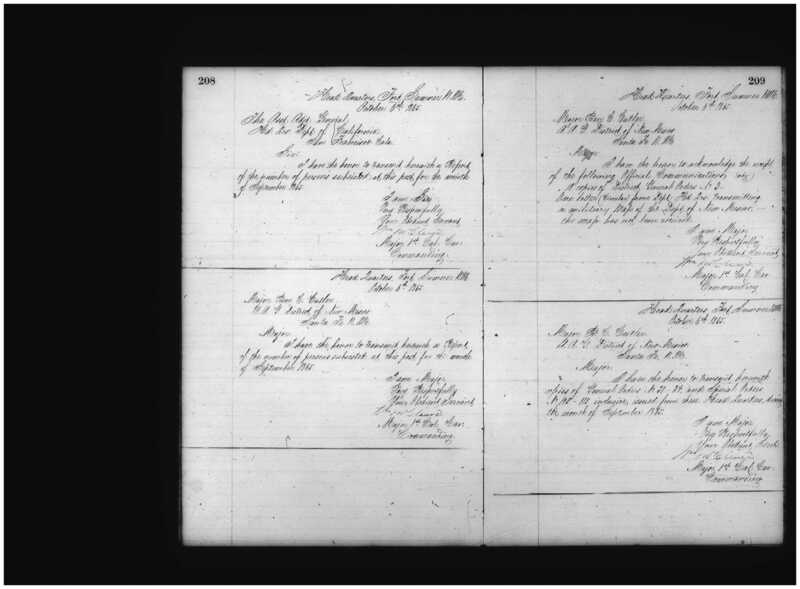 208
Head Quarters, Fort Sumner N.M.
October 5th 1865
The Asst. Adjt. General
Hd. Qrs. Dept. of California
San Francisco Cala.
Sir
I have the honor to transmit herewith a Report
of the number of persons subsisted at this post for the month
of September 1865
I am Sir
Very Respectfully
Your Obedient Servant
Major 1st Cal. Cav.
Commanding.
Head Quarters, Fort Sumner N.M.
October 5th 1865
Major Ben C. Cutler
A.A.G. District of New Mexico
Santa Fe N.M.
Major
I have the honor to transmit herewith a Report
of the number of persons subsisted at this post for the month
of September 1865
I am Major
Very Respectfully
Your Obedient Servant
Major 1st Cal. Cav.
Commanding
209
Head Quarters, Fort Sumner N.M.
October 5th 1865
Major Ben C. Cutler
A.A.G. District of New Mexico
Santa Fe N.M.
Major
I have the honor to acknowledge the receipt
of the following Official Communications
copies of District General Orders No 3.
One letter (Circular) from Dept. Hd. Qrs. transmitting
a military Map of the Dept. of New Mexico. —
the map has not been received
I am Major
Very Respectfully
Your Obedient Servant
Major 1st Cal. Cav.
Commanding
Head Quarters, Fort Sumner N.M.
October 5th 1865.
Major B. C. Cutler
A.A.G. District of New Mexico
Santa Fe N.M.
Major.
I have the honor to transmit herewith
copies of General Orders No 21- 24. and Special Orders
inclusive, issued from these Head Quarters, during
the month of September 1865.
I am Major
Very Respectfully
Your Obedient Servt
Major 1st Cal. Cav.
Commanding